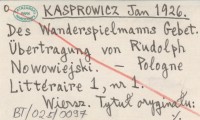 KASPROWICZ Jan 1926.
Des Wanderspielmanns Gebet.
Übertragung von Rudolph
Nowowiejski. — Pologne
Littéraire 1, nr 1.
Wiersz. Tytuł oryginału:
BT/025/0097